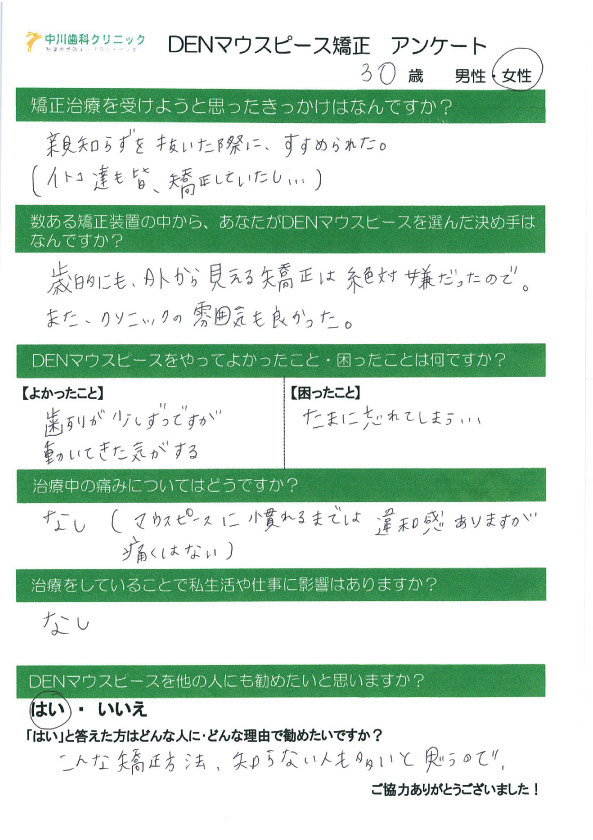 中川歯科クリニック
DENマウスピース矯正 アンケート
30 歳 男性・女性
矯正治療を受けようと思ったきっかけはなんですか？
親知らずを抜いた際に、すすめられた。
(イトコ達も皆、矯正していたし...)
数ある矯正装置の中から、あなたがDENマウスピースを選んだ決め手は
なんですか？
歳的にも、外から見える矯正は絶対嫌だったので。
また、クリニックの雰囲気も良かった。
DENマウスピースをやってよかったこと・困ったことは何ですか？
【よかったこと】
歯列が少しずつですが
動いてきた気がする
【困ったこと】
たまに忘れてしまう...
治療中の痛みについてはどうですか？
なし (マウスピースに慣れるまでは違和感ありますが
痛くはない)
治療をしていることで私生活や仕事に影響はありますか？
なし
DENマウスピースを他の人にも勧めたいと思いますか？
はい ・ いいえ
「はい」と答えた方はどんな人に・どんな理由で勧めたいですか？
こんな矯正方法、知らない人も多いと思うので、
ご協力ありがとうございました！